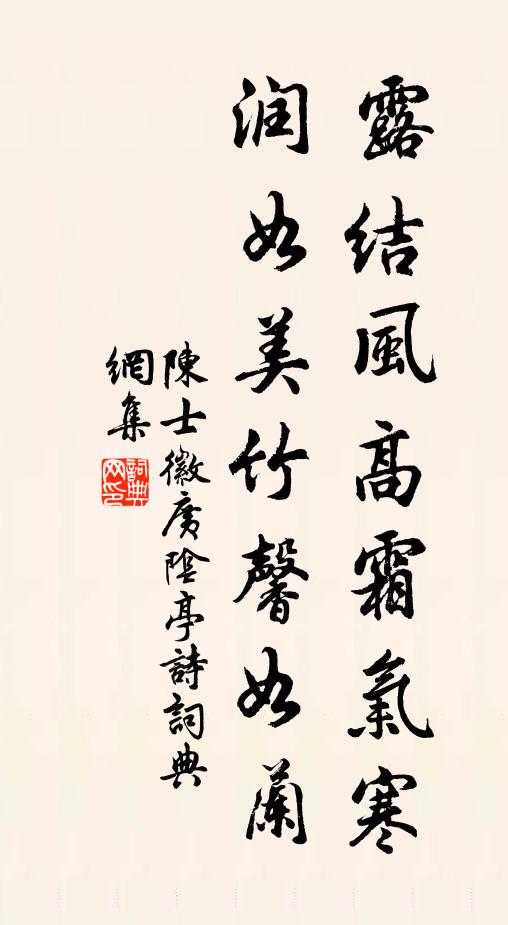 露結風高霜氣寒
润如美竹馨如蘭
陳士徽廣陰亭詩詞典
網集
詞典网印